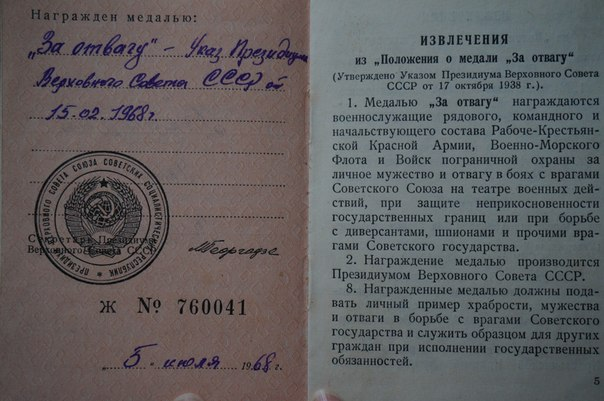 Награжден медалью:
„За отвагу" – Указ Президиума
Верховного Совета СССР от
15.02.1968г.
ПРЕЗИДИУМ ВЕРХОВНОГО СОВЕТА СОЮЗА СОВЕТСКИХ СОЦИАЛИСТИЧЕСКИХ РЕСПУБЛИК
Секретарь Президиума
Верховного Совета СССР
МГеоргадзе
Ж № 760041
„5" июля 1968г.
ИЗВЛЕЧЕНИЯ
из „Положения о медали „За отвагу"
(Утверждено Указом Президиума Верховного Совета
СССР от 17 октября 1938 г.).
1. Медалью „За отвагу" награждаются
военнослужащие рядового, командного и
начальствующего состава Рабоче-Крестьян-
ской Красной Армии, Военно-Морского
Флота и Войск пограничной охраны за
личное мужество и отвагу в боях с врагами
Советского Союза на театре военных дей-
ствий, при защите неприкосновенности
государственных границ или при борьбе
с диверсантами, шпионами и прочими вра-
гами Советского государства.
2. Награждение медалью производится
Президиумом Верховного Совета СССР.
8. Награжденные медалью должны пода-
вать личный пример храбрости, мужества
и отваги в борьбе с врагами Советского
государства и служить образцом для других
граждан при исполнении государственных
обязанностей.
5